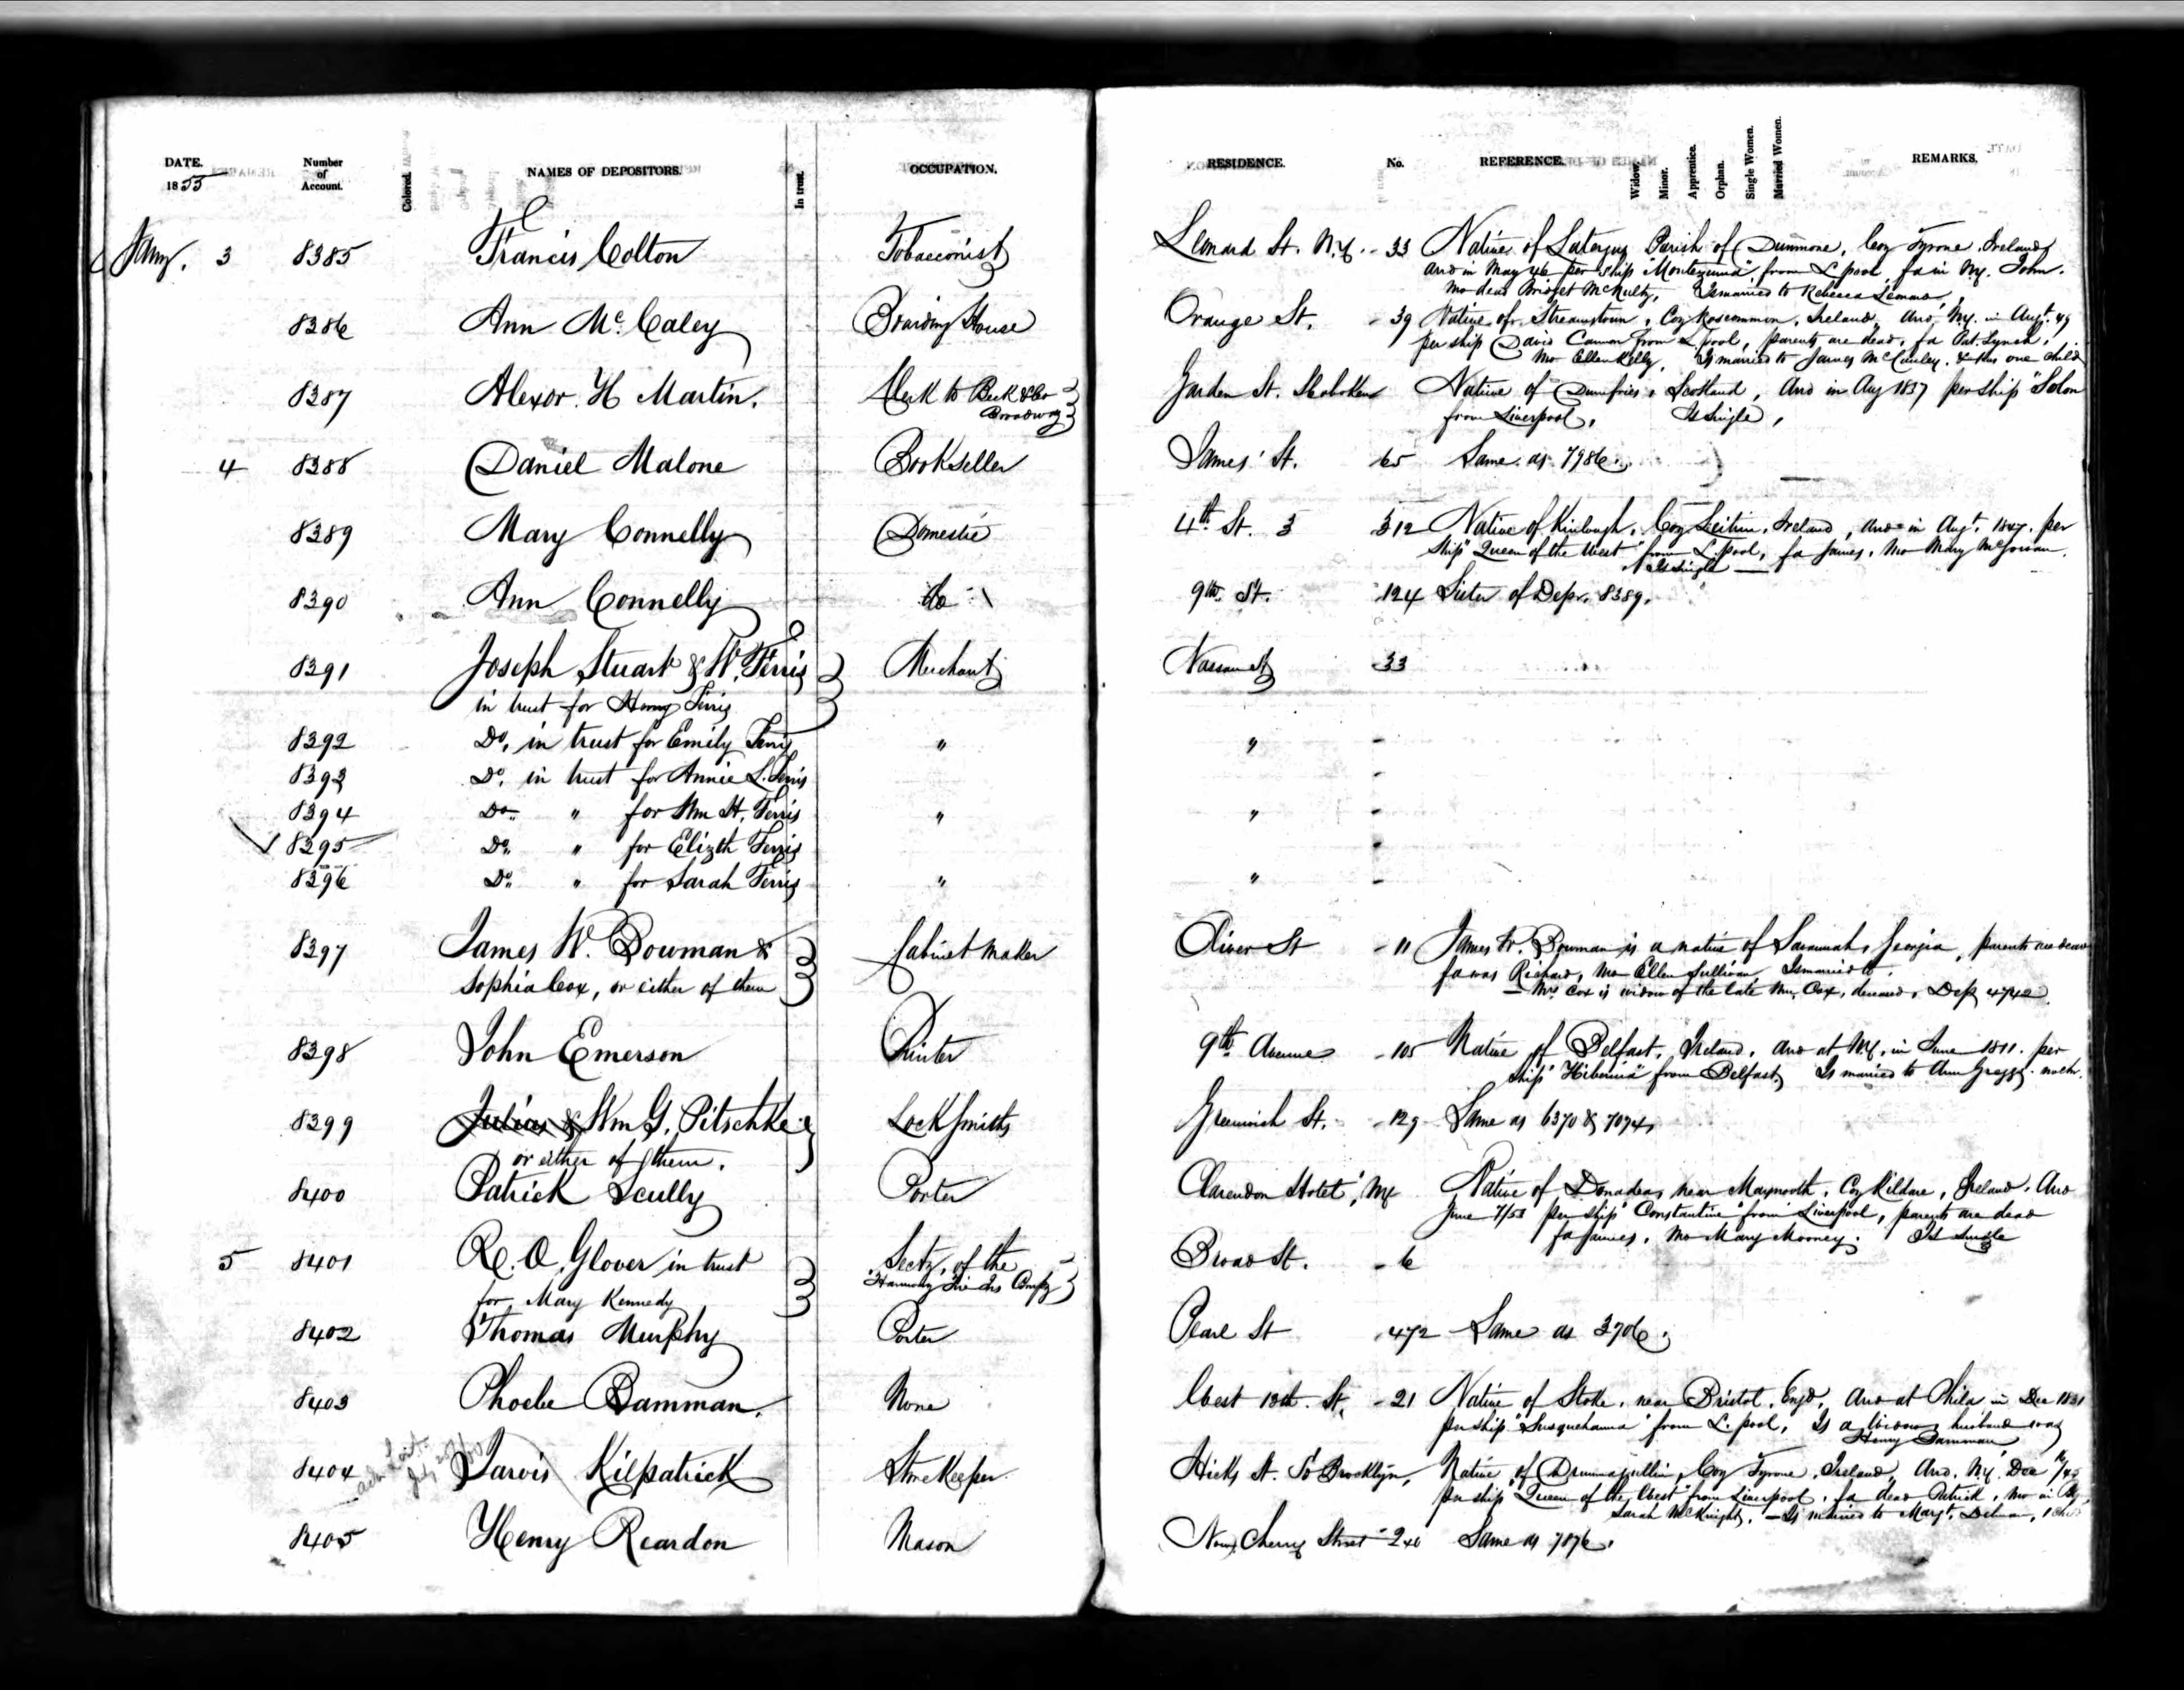 DATE. Number of Account. Colored. NAMES OF DEPOSITORS. In trust. OCCUPATION. RESIDENCE. No. REFERENCE. Widow. Minor. Apprentice. Orphan. Single Women. Married Women. REMARKS.
1855
Jany. 3 8385 Francis Colton Tobacconist Leonard St. N.Y. - 33 Native of Parish of Coy Tyrone, Ireland
and in May 46 per ship "Montezuma" from L.pool, fa in NY. John.
mo dead Bridget McNulty, Is married to Rebecca
8386 Ann Mc.Caley Boarding House Orange St. - 39 Native of Streamstown, Coy Roscommon, Ireland, Arrd NY. in Augt. 49
per ship David Cannon from L.pool, parents are dead, fa Pat. Lynch,
mo Ellen Kelly, Is married to James McCauley. & has one child
8387 Alexor. H Martin. Clerk to Beck & Co Broadway Garden St. Hoboken Native of Dumfries, Scotland, Arrd in Aug 1837 per ship "Solon
from Liverpool, Is single,
4 8388 Daniel Malone Bookseller James' St. 65 Same as 7986.
8389 Mary Connelly Domestic 4th St. 3 312 Native of Kinlough, Coy Leitrim, Ireland, Arrd in Augt. 1847. per
Ship "Queen of the West" from L.pool, fa James, Mo Mary McGowan.
Is single —
8390 Ann Connelly do 9th St. 124 Sister of Depr. 8389.
8391 Joseph Stuart & W. Ferris Merchant Nassau St 33
in trust for Henry Ferris
8392 Do. in trust for Emily Ferris " " -
8393 Do. in trust for Annie L. Ferris -
8394 Do. " for Wm H. Ferris " " -
8395 Do. " for Elizth Ferris -
8396 Do. " for Sarah Ferris " " -
8397 James W. Bowman & Cabinet Maker Oliver St - 11 James W. Bowman is a native of Savannah, Georgia, parents are dead
Sophia Cox, or either of them fa was Richard, Mo Ellen Sullivan, Is married to.
— Mrs Cox is widow of the late Cox, deceased, Dep 4742.
8398 John Emerson 9th Avenue - 105 Native of Belfast, Ireland, Arrd at NY. in June 1811. per
ship "Hibernia" from Belfast, Is married to Ann Gregg.
8399 Julius & Wm G. Pitschke Lock Smiths Greenwich St. - 129 Same as 6370 & 7094,
or either of them.
8400 Patrick Scully Porter Clarendon Hotel, NY Native of Donadea, near Maynooth, Coy Kildare, Ireland. Arrd
June 7/53 per ship "Constantine" from Liverpool, parents are dead
fa James, Mo Mary Mooney. Is Single
5 8401 R. O. Glover in trust Secty. of the Broad St. - 6
for Mary Kennedy Harmony Fire Ins Compy
8402 Thomas Murphy Porter Pearl St 472 Same as 3706.
8403 Phoebe Damman. None West 13th St. - 21 Native of Stoke, near Bristol, Engd. Arrd at Phila in Dec 1831
per ship "Susquehanna" from L.pool, Is a Widow, husband was
Henry Damman
8404 Jarvis Kilpatrick Storekeeper Hicks St. So Brooklyn, Native of Coy Tyrone, Ireland, Arrd. NY. Dec
per ship "Queen of the West" from Liverpool, fa dead Patrick, Mo in
Sarah McKnight, — Is married to Margt.
8405 Henry Reardon Mason Now Cherry Street Same as 7876.